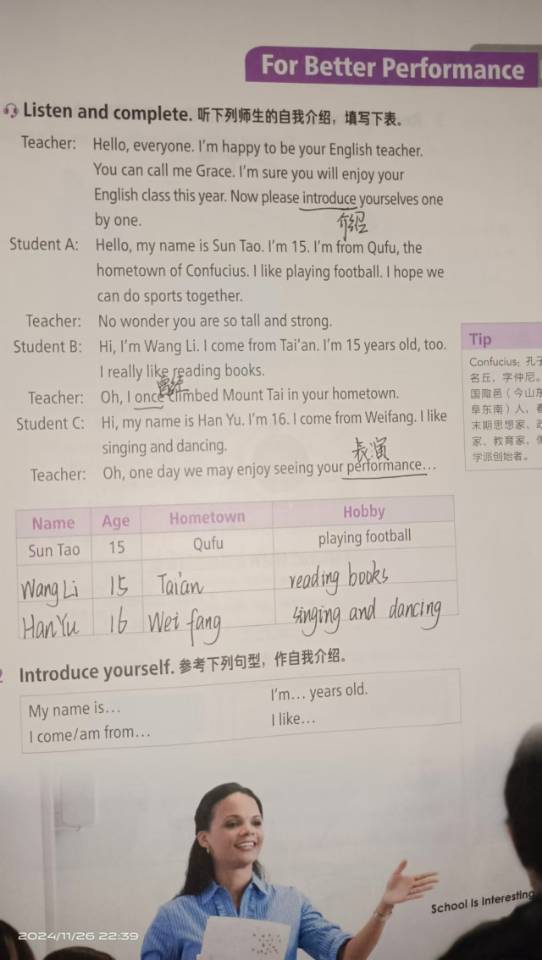 For Better Performance
Listen and complete. 听下列师生的自我介绍，填写下表。
Teacher: Hello, everyone. I'm happy to be your English teacher.
You can call me Grace. I'm sure you will enjoy your
English class this year. Now please introduce yourselves one
by one.
介绍
Student A: Hello, my name is Sun Tao. I'm 15. I'm from Qufu, the
hometown of Confucius. I like playing football. I hope we
can do sports together.
Teacher: No wonder you are so tall and strong.
Student B: Hi, I'm Wang Li. I come from Tai'an. I'm 15 years old, too.
I really like reading books.
曾经
Teacher: Oh, I once climbed Mount Tai in your hometown.
Student C: Hi, my name is Han Yu. I'm 16. I come from Weifang. I like
singing and dancing.
表演
Teacher: Oh, one day we may enjoy seeing your performance…
Tip
Confucius: 孔子
名丘，字仲尼。
国陬邑（今山东
阜东南）人，春
末期思想家、政
家、教育家，儒
学派创始者。
Name Age Hometown Hobby
Sun Tao 15 Qufu playing football
Wang Li 15 Tai'an reading books
Han Yu 16 Wei fang singing and dancing
2 Introduce yourself. 参考下列句型，作自我介绍。
My name is… I'm… years old.
I come/am from… I like…
School Is Interesting
2024/11/26 22:39